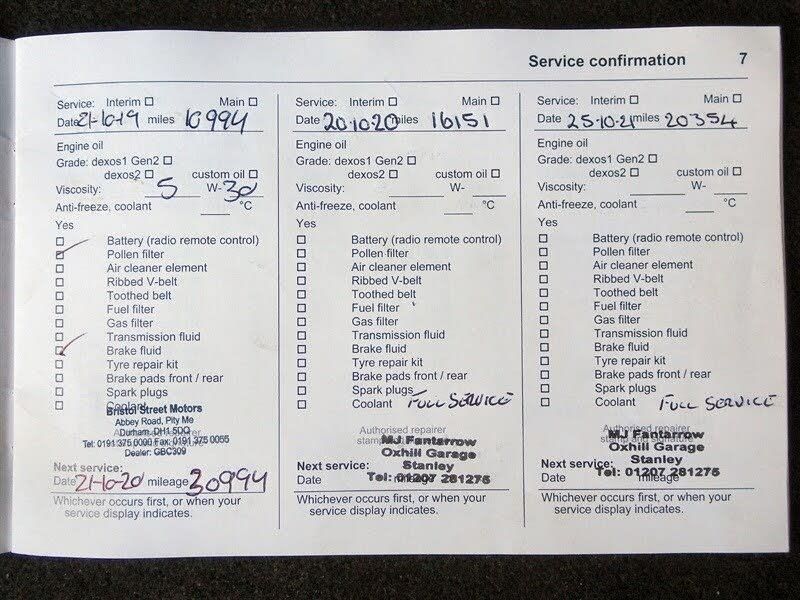 Service confirmation 7
Service: Interim ☐ Main ☐
Date 21-10-19 miles 10994
Engine oil
Grade: dexos1 Gen2 ☐
dexos2 ☐ custom oil ☐
Viscosity: 5 W- 30
Anti-freeze, coolant ____ °C
Yes
☐ Battery (radio remote control)
☑ Pollen filter
☐ Air cleaner element
☐ Ribbed V-belt
☐ Toothed belt
☐ Fuel filter
☐ Gas filter
☐ Transmission fluid
☑ Brake fluid
☐ Tyre repair kit
☐ Brake pads front / rear
☐ Spark plugs
☐ Coolant
Bristol Street Motors
Abbey Road, Pity Me
Durham. DH1 5DQ
Tel: 0191 375 0000 Fax: 0191 375 0055
Dealer: GBC309
Next service:
Date 21-10-20 mileage 30994
Whichever occurs first, or when your
service display indicates.
Service: Interim ☐ Main ☐
Date 20-10-20 miles 16151
Engine oil
Grade: dexos1 Gen2 ☐
dexos2 ☐ custom oil ☐
Viscosity: ____ W- ____
Anti-freeze, coolant ____ °C
Yes
☐ Battery (radio remote control)
☐ Pollen filter
☐ Air cleaner element
☐ Ribbed V-belt
☐ Toothed belt
☐ Fuel filter
☐ Gas filter
☐ Transmission fluid
☐ Brake fluid
☐ Tyre repair kit
☐ Brake pads front / rear
☐ Spark plugs
☐ Coolant FULL SERVICE
Authorised repairer
stamp
M J Fantarrow
Oxhill Garage
Stanley
Tel: 01207 281275
Next service:
Date mileage
Whichever occurs first, or when your
service display indicates.
Service: Interim ☐ Main ☐
Date 25-10-21 miles 20354
Engine oil
Grade: dexos1 Gen2 ☐
dexos2 ☐ custom oil ☐
Viscosity: ____ W- ____
Anti-freeze, coolant ____ °C
Yes
☐ Battery (radio remote control)
☐ Pollen filter
☐ Air cleaner element
☐ Ribbed V-belt
☐ Toothed belt
☐ Fuel filter
☐ Gas filter
☐ Transmission fluid
☐ Brake fluid
☐ Tyre repair kit
☐ Brake pads front / rear
☐ Spark plugs
☐ Coolant FULL SERVICE
Authorised repairer
stamp and signature
M J Fantarrow
Oxhill Garage
Stanley
Tel: 01207 281275
Next service:
Date mileage
Whichever occurs first, or when your
service display indicates.